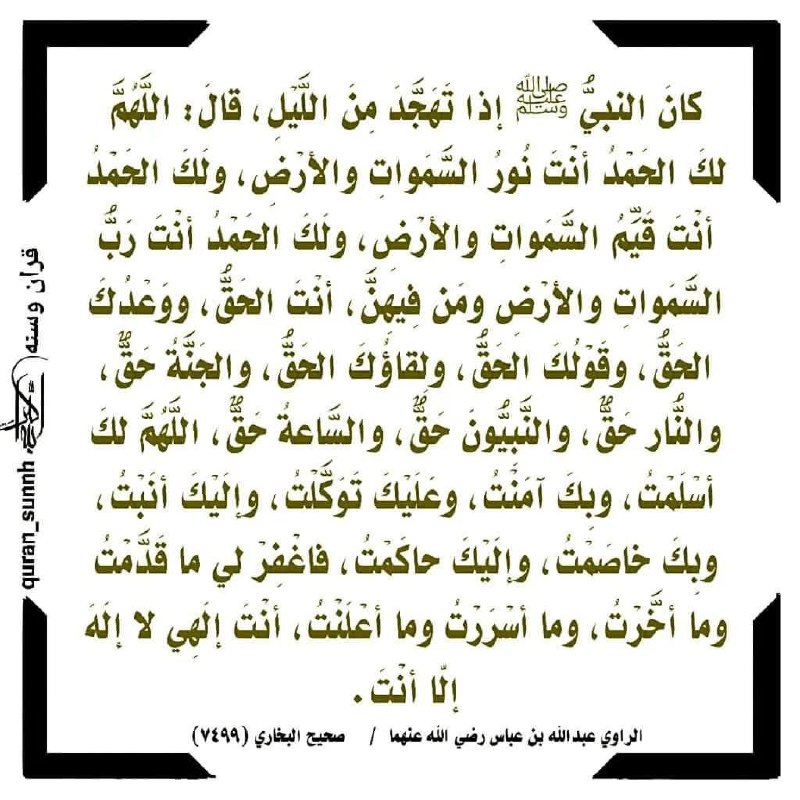 كانَ النبيُّ ﷺ إذا تَهَجَّدَ مِنَ اللَّيْلِ، قالَ: اللَّهُمَّ
لكَ الحَمْدُ أنْتَ نُورُ السَّمَواتِ والأرْضِ، ولَكَ الحَمْدُ
أنْتَ قَيِّمُ السَّمَواتِ والأرْضِ، ولَكَ الحَمْدُ أنْتَ رَبُّ
السَّمَواتِ والأرْضِ ومَن فِيهِنَّ، أنْتَ الحَقُّ، ووَعْدُكَ
الحَقُّ، وقَوْلُكَ الحَقُّ، ولِقاؤُكَ الحَقُّ، والجَنَّةُ حَقٌّ،
والنَّار حَقٌّ، والنَّبِيُّونَ حَقٌّ، والسَّاعةُ حَقٌّ، اللَّهُمَّ لكَ
أسْلَمْتُ، وبِكَ آمَنْتُ، وعَلَيْكَ تَوَكَّلْتُ، وإلَيْكَ أنَبْتُ،
وبِكَ خاصَمْتُ، وإلَيْكَ حاكَمْتُ، فاغْفِرْ لي ما قَدَّمْتُ
وما أخَّرْتُ، وما أسْرَرْتُ وما أعْلَنْتُ، أنْتَ إلَهِي لا إلَهَ
إلّا أنْتَ.
الراوي عبدالله بن عباس رضي الله عنهما / صحيح البخاري (٧٤٩٩)
قرآن وسنه
quran_sunnh